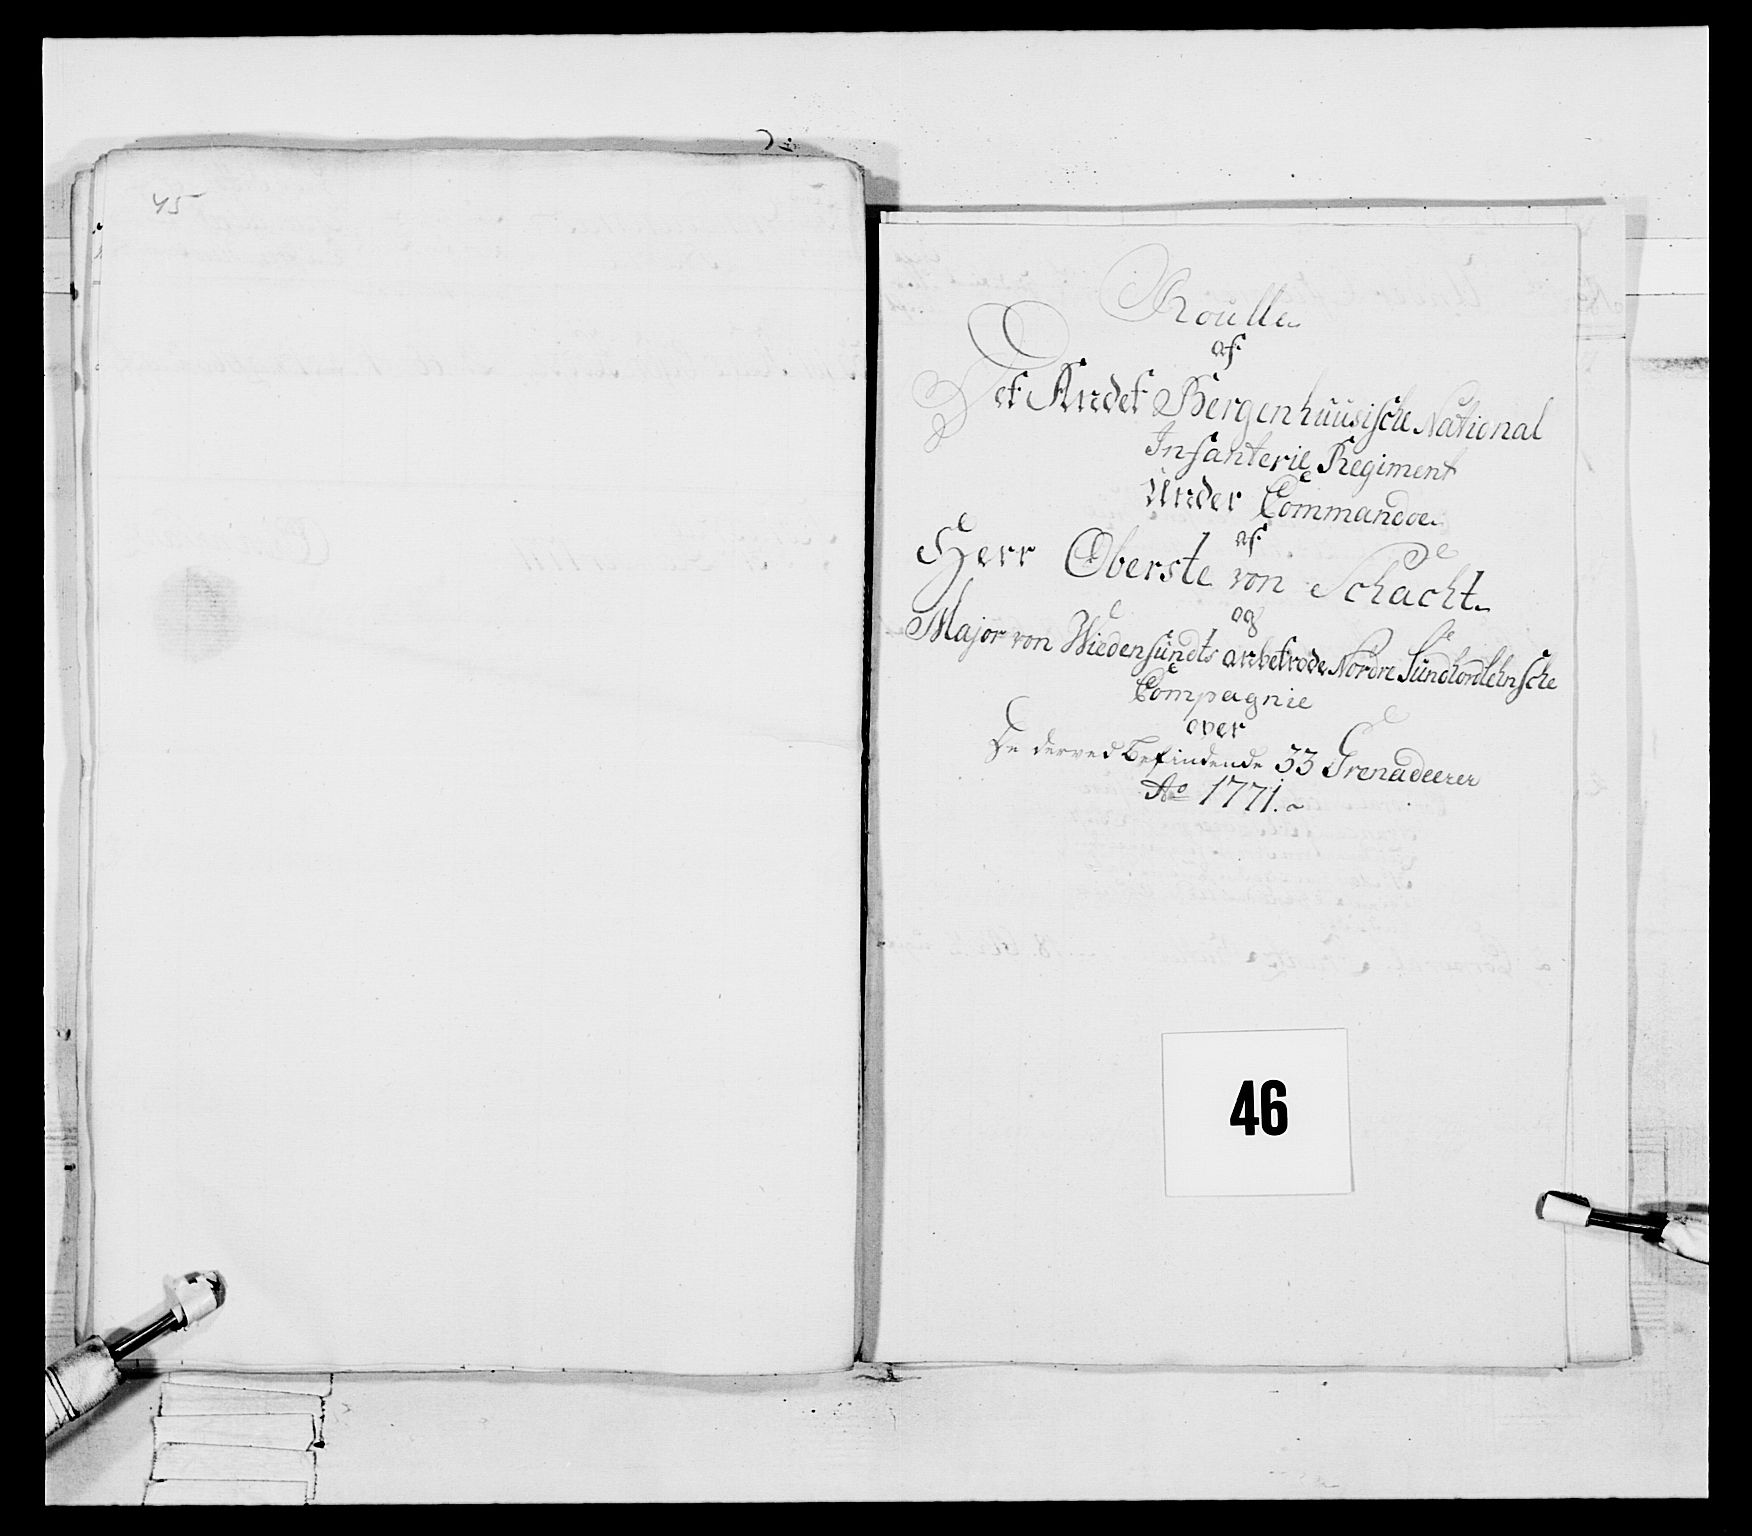 45
Roulle
af
Det Andet Bergenhuusische National
Infanterie Regiment
Under Commandoe
af
Herr Oberste von Schacht
og
Major von Wiedensundts anbetrode Nordre Sundhordlehnsche
Compagnie
over
De derved befindende 33 Grenadeerer
Ao 1771.
46